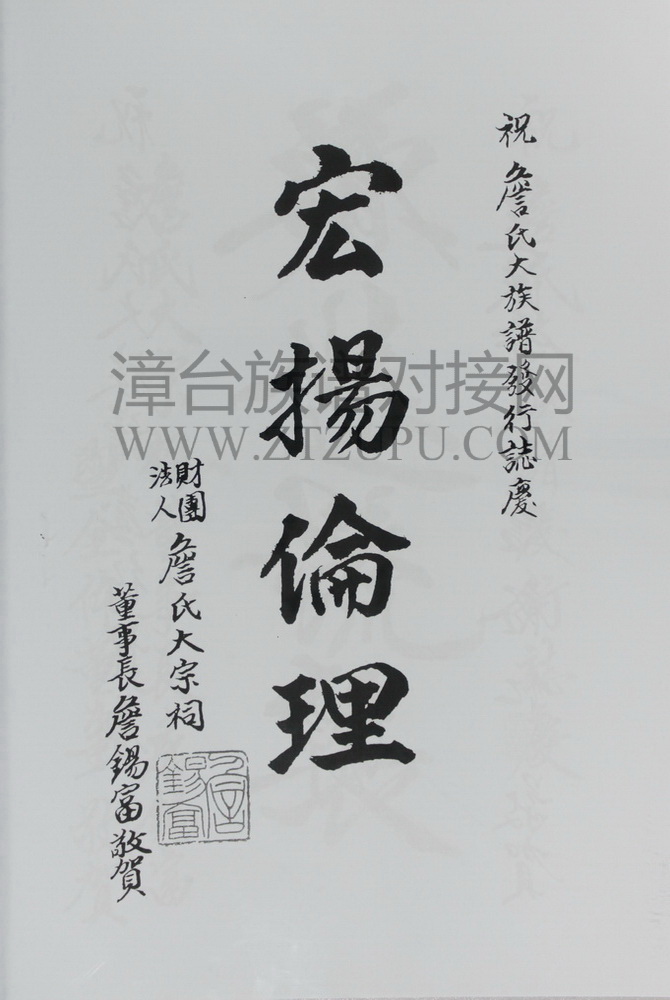 祝詹氏大族譜發行誌慶
宏揚倫理
財團法人詹氏大宗祠
董事長詹錫富敬賀
詹錫富
漳台族谱对接网
WWW.ZTZUPU.COM